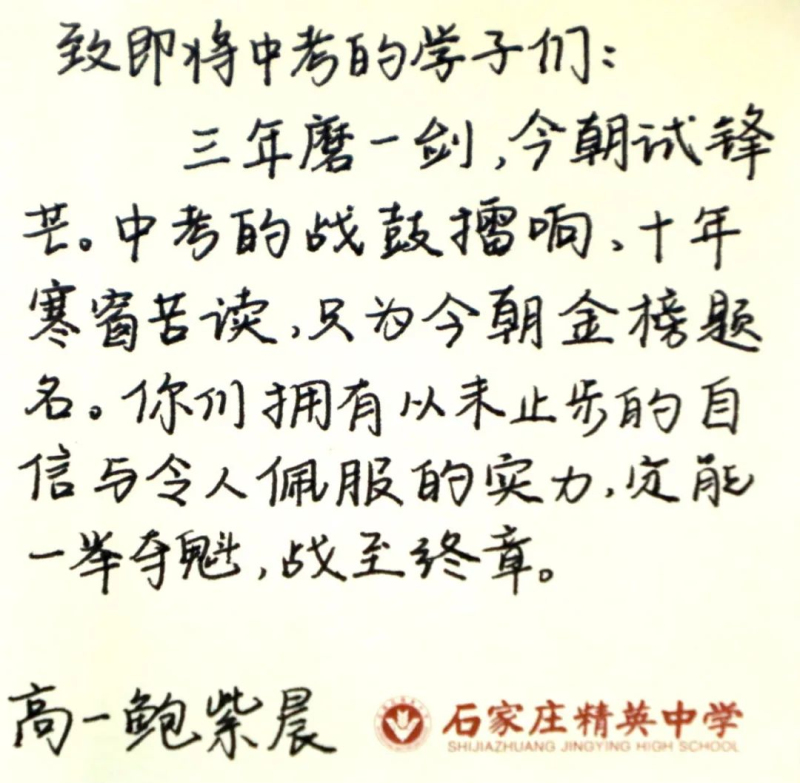 致即将中考的学子们：
三年磨一剑，今朝试锋
芒。中考的战鼓擂响、十年
寒窗苦读，只为今朝金榜题
名。你们拥有从未止步的自
信与令人佩服的实力，定能
一举夺魁，战至终章。
高一鲍紫晨
石家庄精英中学
SHIJIAZHUANG JINGYING HIGH SCHOOL